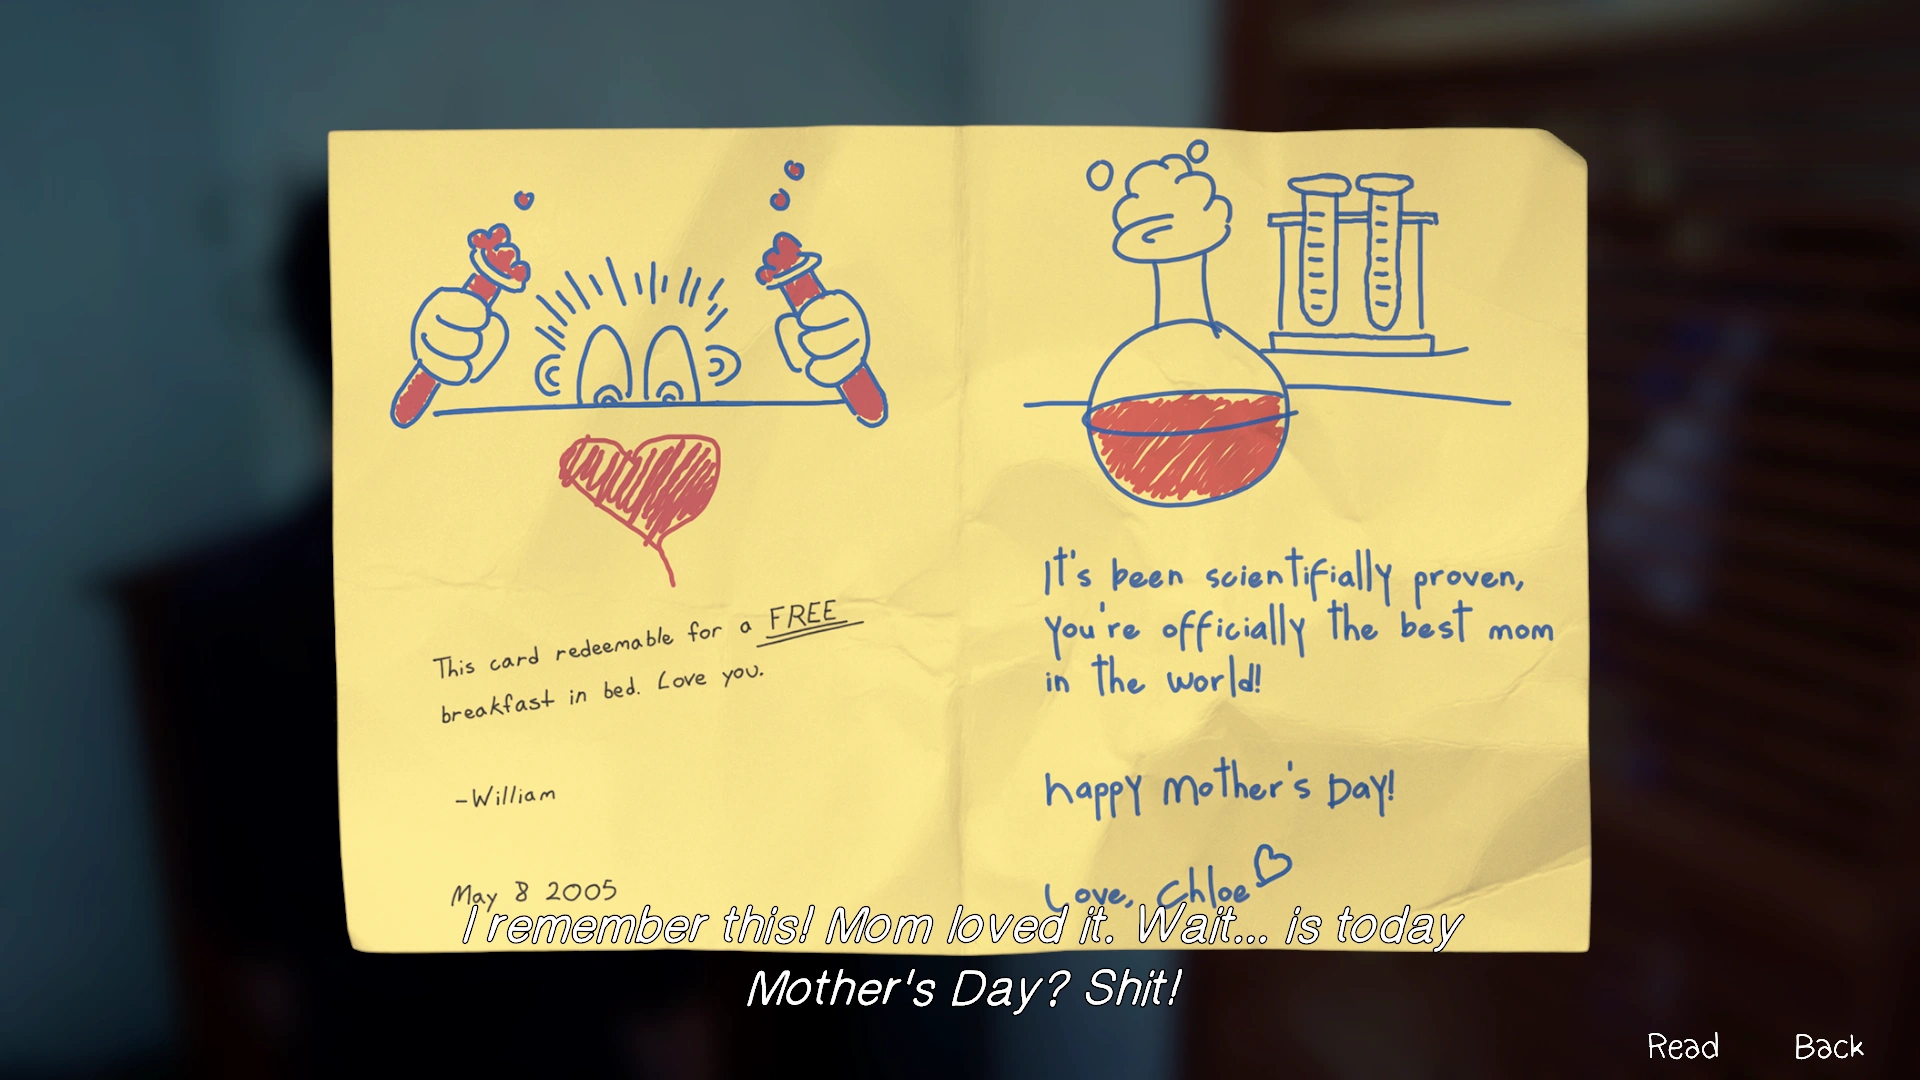 This card redeemable for a FREE
breakfast in bed. Love you.
-William
May 8 2005
It's been scientifially proven,
you're officially the best mom
in the world!
happy Mother's Day!
Love, Chloe
I remember this! Mom loved it. Wait... is today
Mother's Day? Shit!
Read
Back